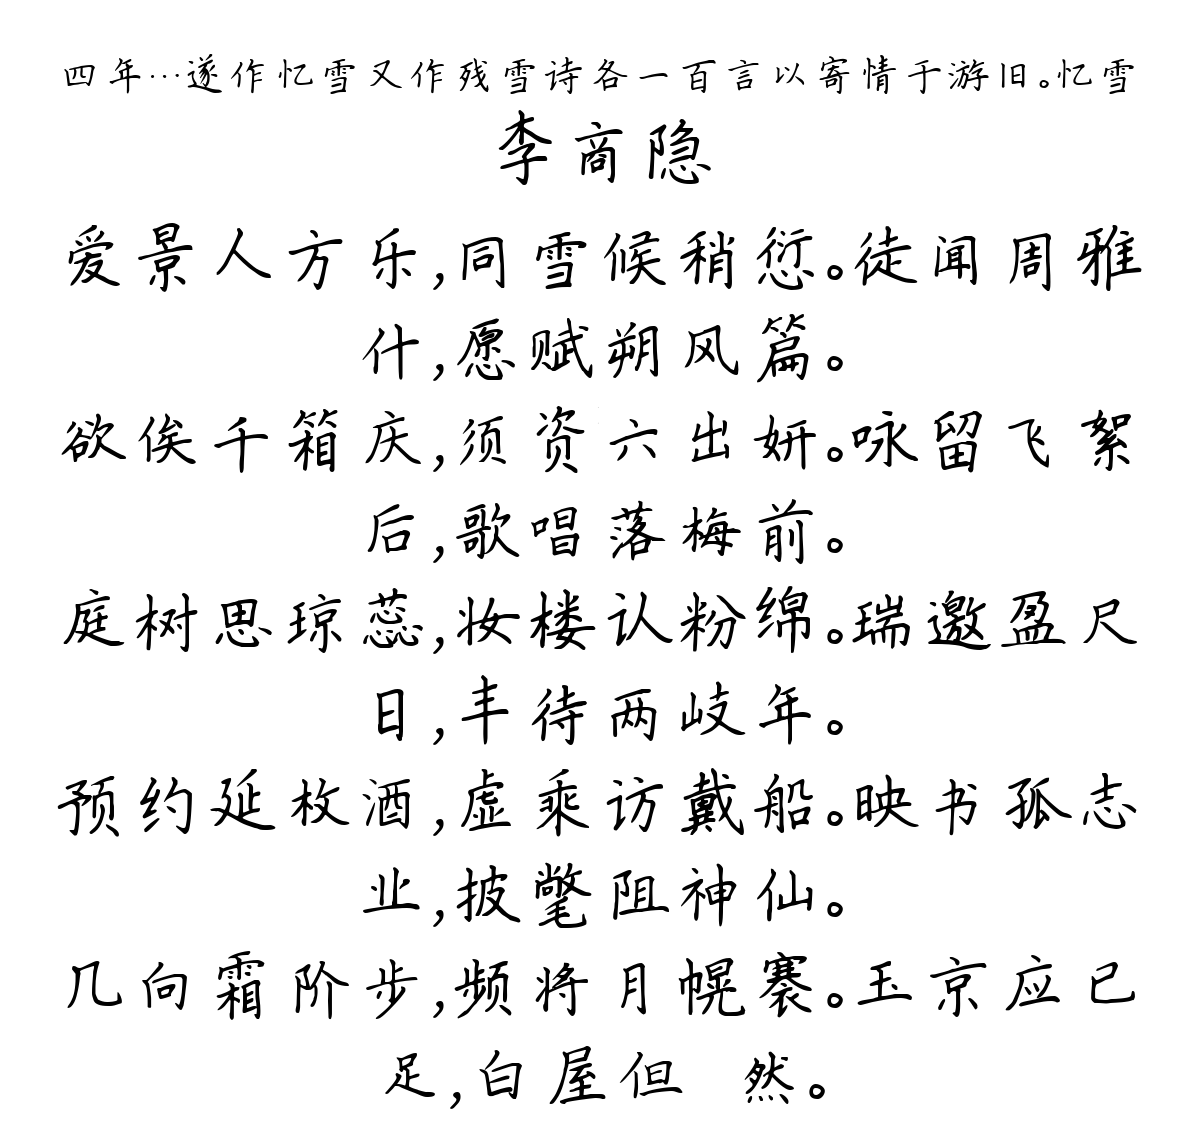 四年…遂作忆雪又作残雪诗各一百言以寄情于游旧。忆雪
李商隐
爱景人方乐,同雪候稍愆。徒闻周雅
什,愿赋朔风篇。
欲俟千箱庆,须资六出妍。咏留飞絮
后,歌唱落梅前。
庭树思琼蕊,妆楼认粉绵。瑞邀盈尺
日,丰待两岐年。
预约延枚酒,虚乘访戴船。映书孤志
业,披氅阻神仙。
几向霜阶步,频将月幌褰。玉京应已
足,白屋但 然。